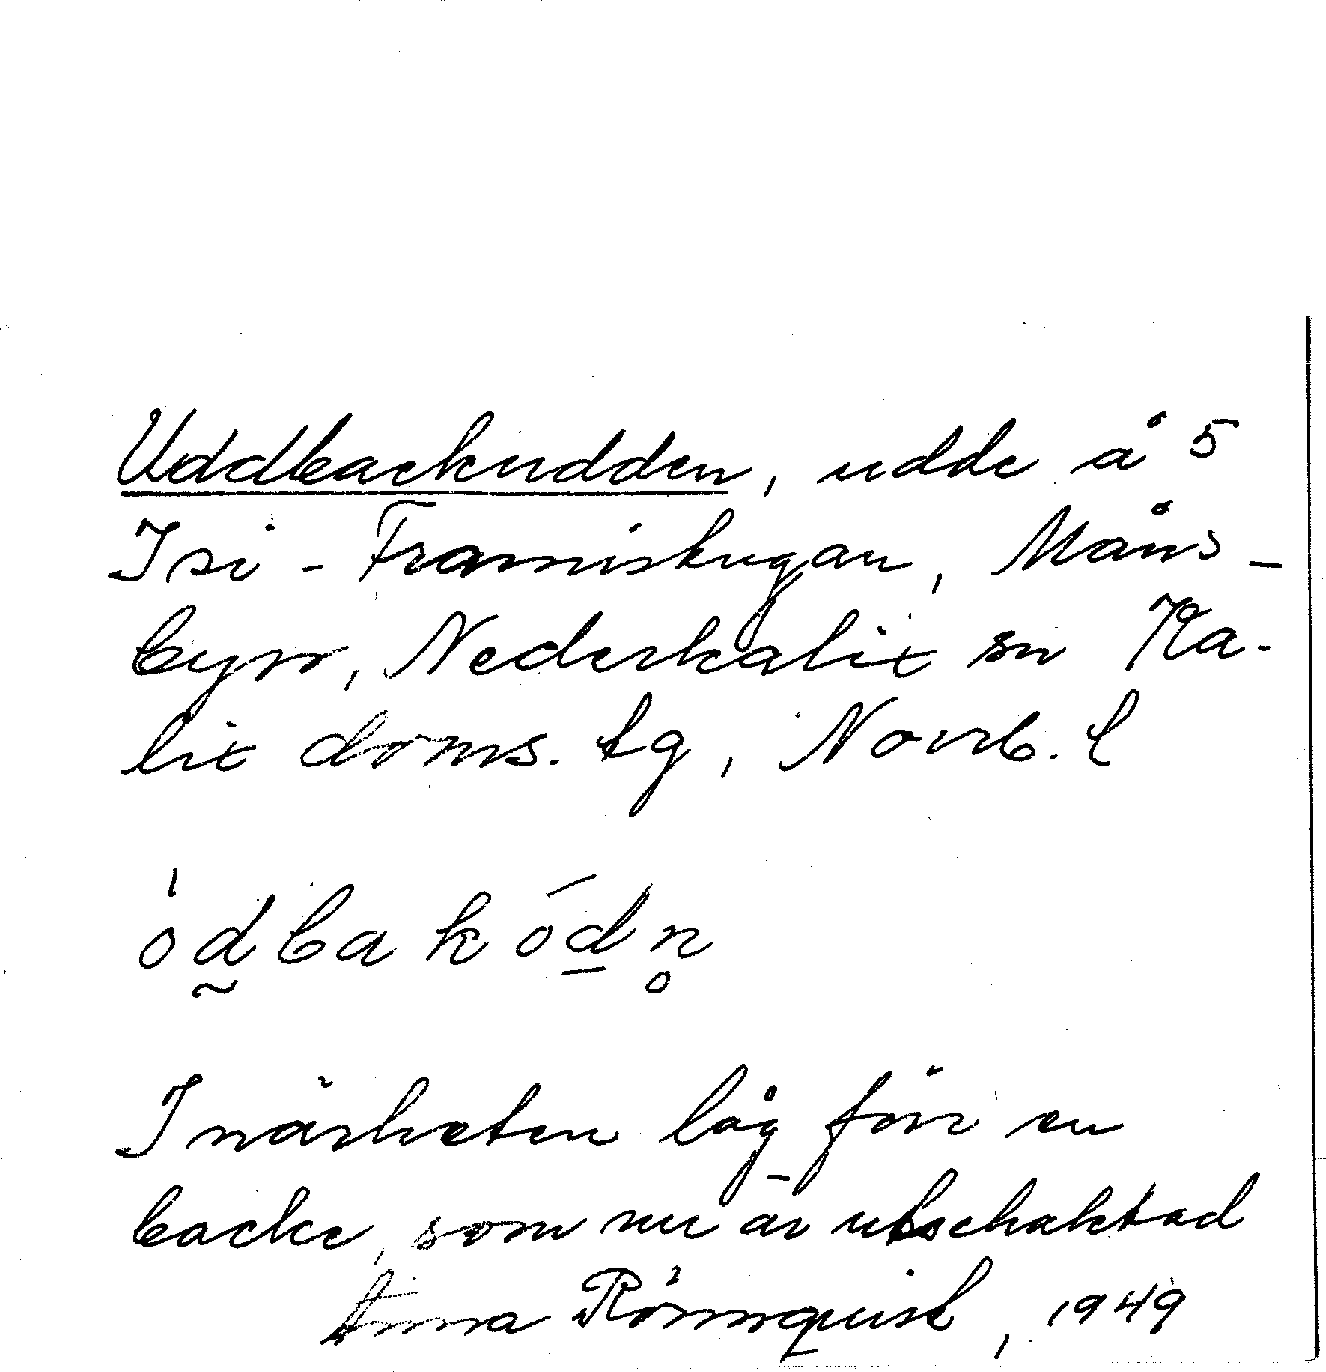 Uddbackudden, udde å 5
Isi-Framiskugan, Måns-
byn, Nederkalix sn Ka-
lix doms. tg, Norrb. l
òd̰ba kód̲n̥
I närheten låg förr en
backe, som nu är utschaktad
Anna Rönnquist, 1949